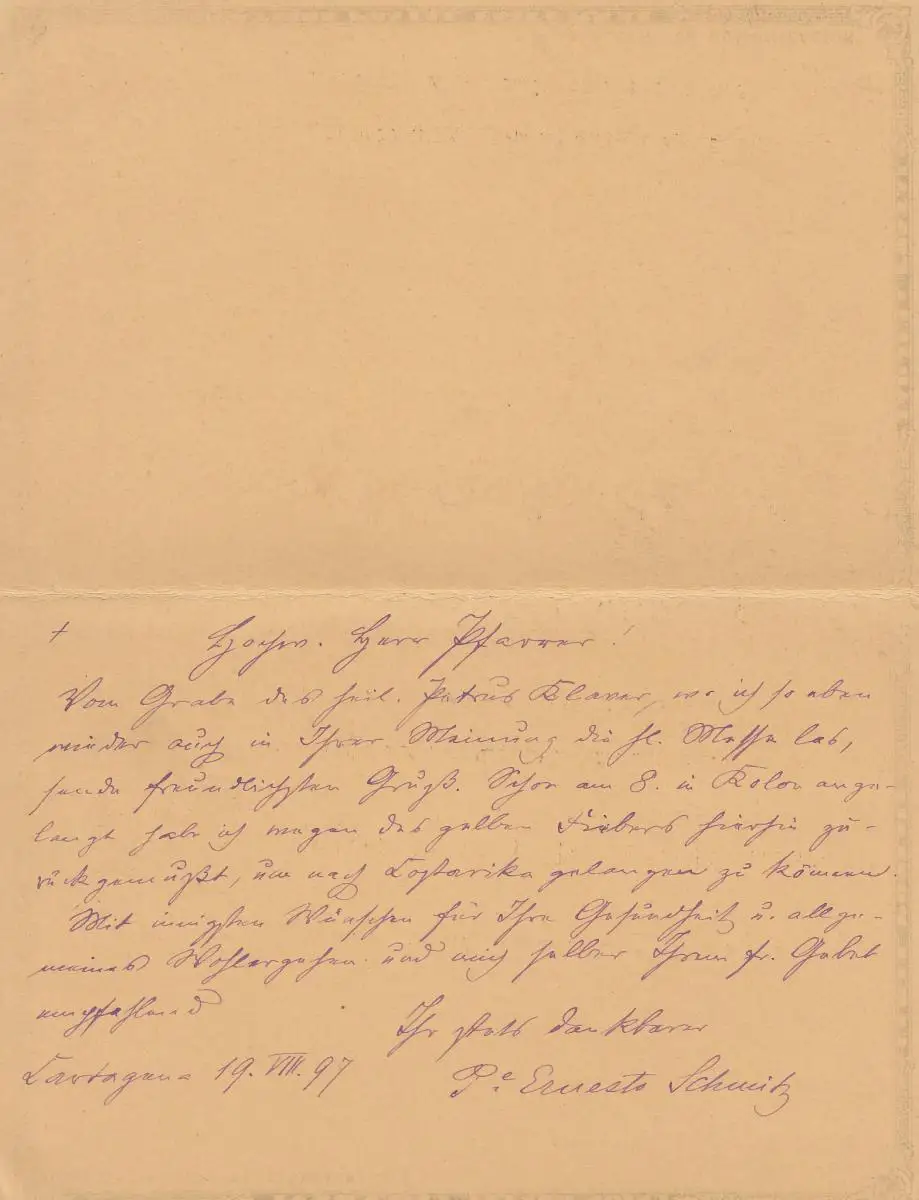 + Hochw. Herr Pfarrer!
Vom Grabe des heil. Petrus Klaver, wo ich so eben
wieder auch in Ihrer Meinung die hl. Messe las,
sende freundlichsten Gruß. Schon am 8. in Kolon ange-
langt habe ich wegen des gelben Fiebers hierhin zu-
rück gemußt, um nach Costarika gelangen zu können.
Mit innigsten Wünschen für Ihre Gesundheit u. allge-
meines Wohlergehen und mich selber Ihrem fr. Gebet
empfehlend
Ihr stets dankbarer
Cartagena 19. VIII. 97
Pe Ernesto Schmitz